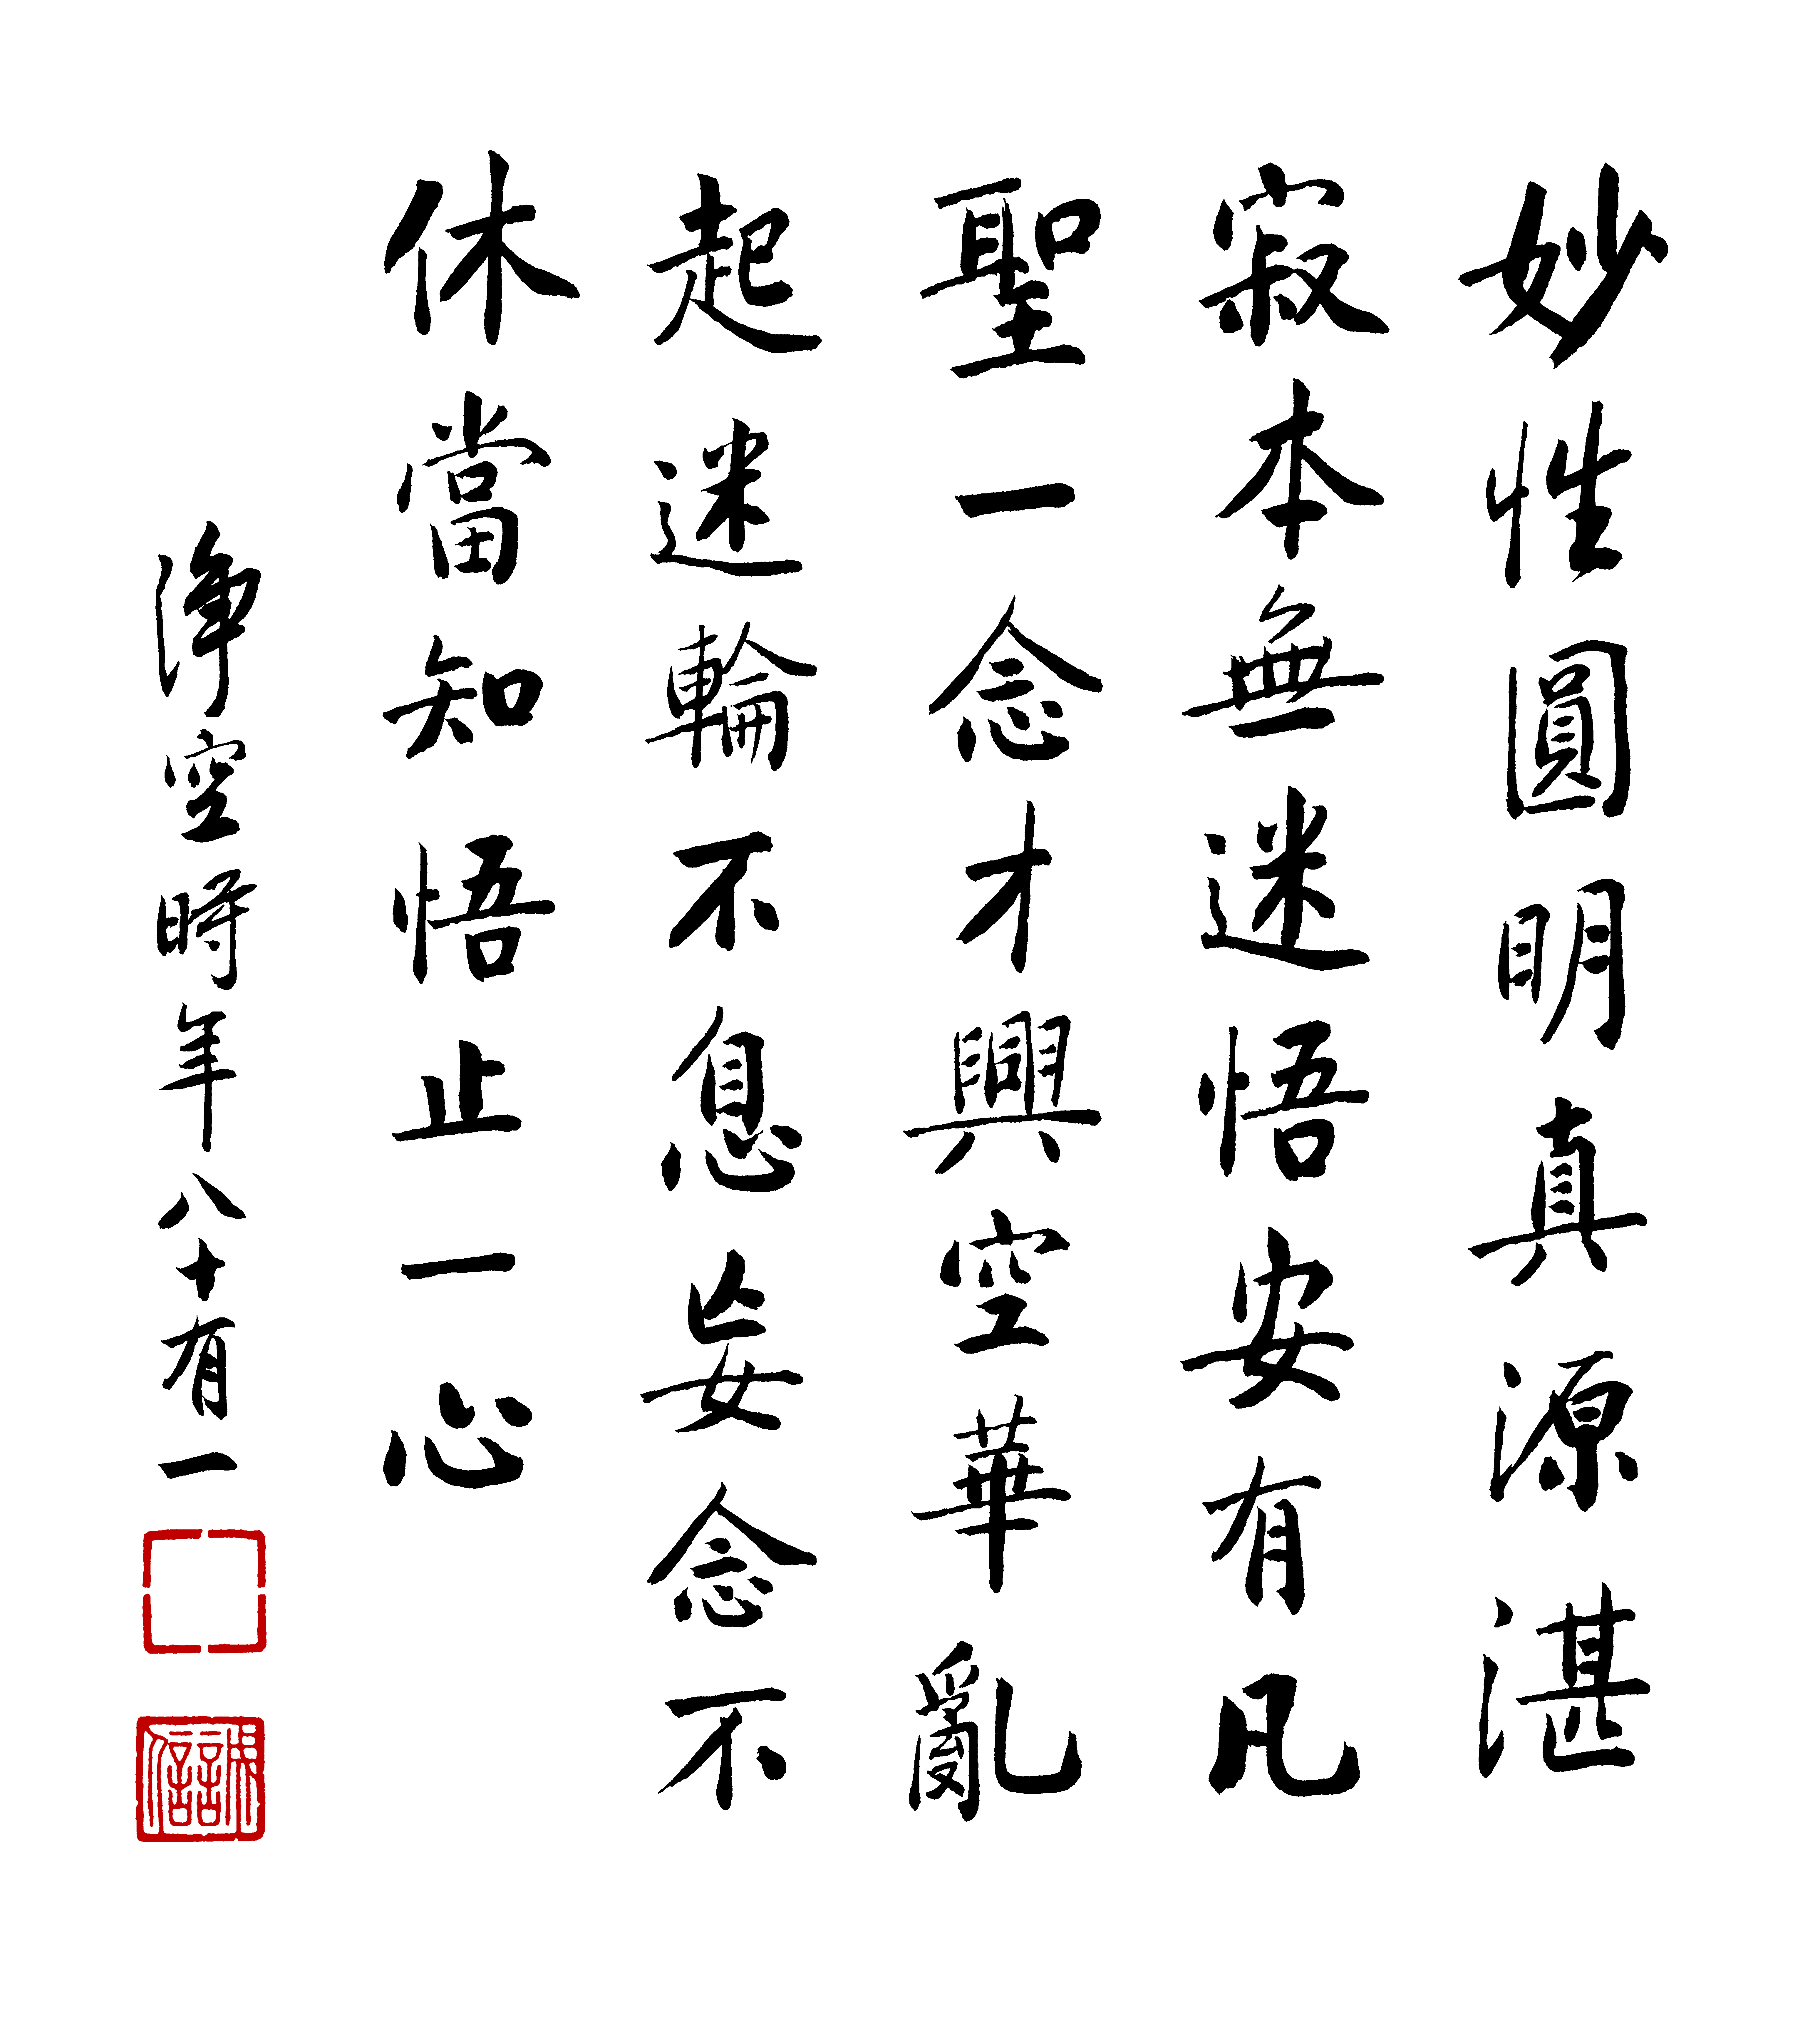 妙性圓明真源湛
寂本無迷悟安有凡
聖一念才興空華亂
起迷輪不息妄念不
休當知悟止一心
淨空時年八十有一